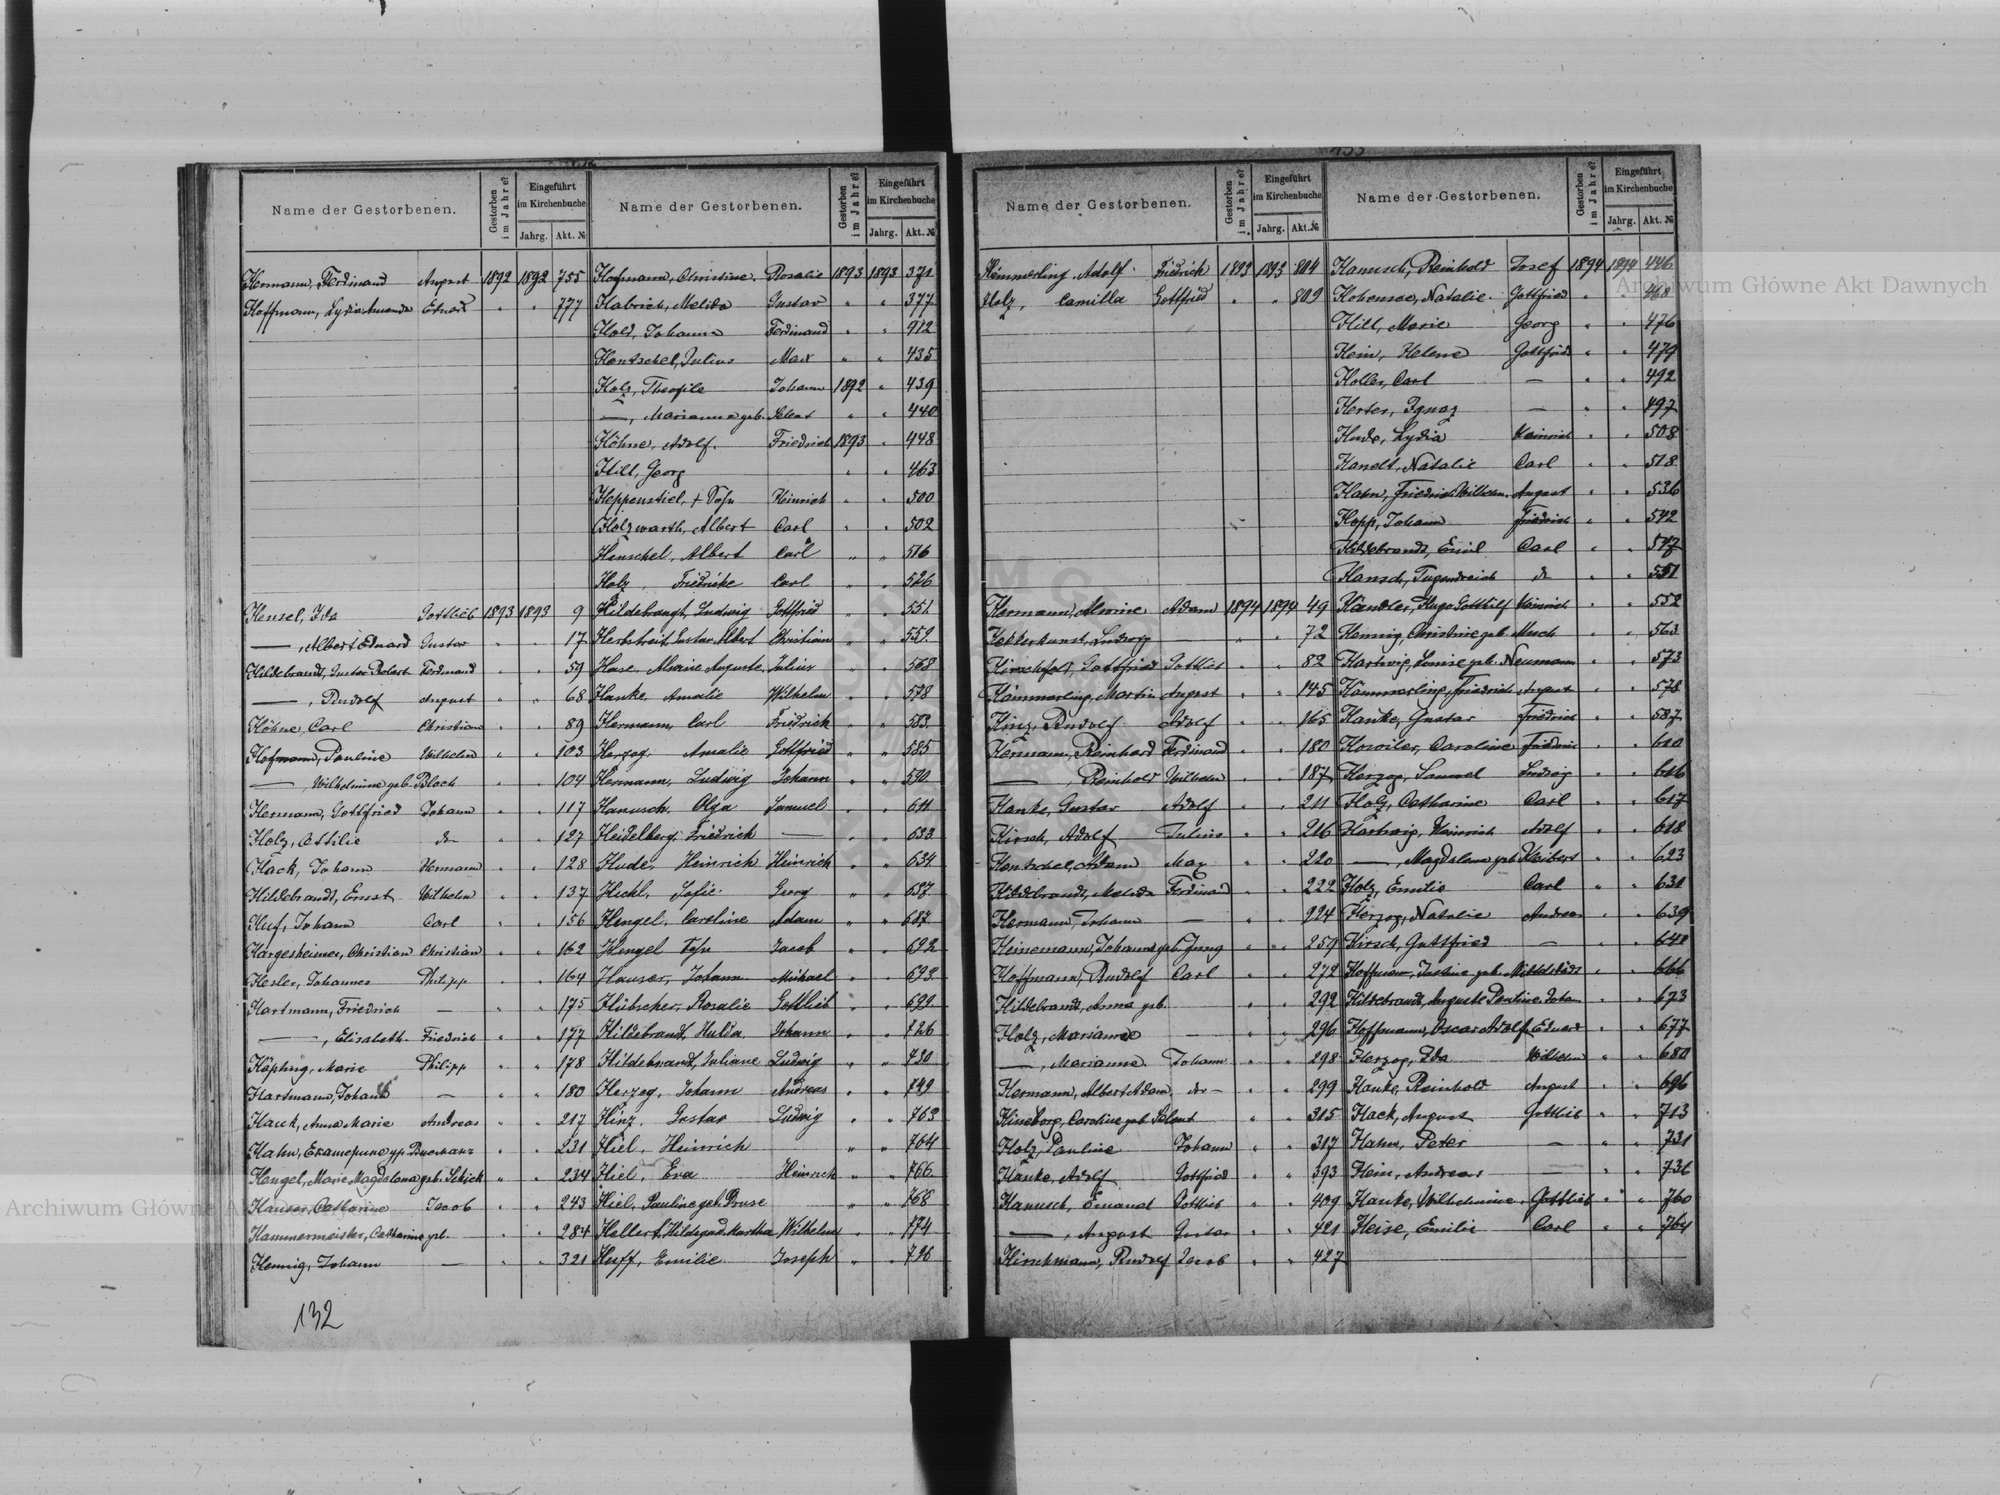 Name der Gestorbenen. Gestorben im Jahre? Eingeführt im Kirchenbuche Jahrg. Akt. №
Hermann, Ferdinand August 1892 1892 755
Hoffmann, Lydia Amanda Eduard " " 777
Hensel, Ida Gottlieb 1893 1893 9
—, Albert Eduard Gustav " " 17
Hildebrandt, Gustav Robert Ferdinand " " 59
—, Rudolf August " " 68
Höhne, Carl Christian " " 89
Hofmann, Pauline Wilhelm " " 103
—, Wilhelmine geb. Bloch " " 104
Hermann, Gottfried Johann " " 117
Holz, Ottilie do " " 127
Hack, Johann Hermann " " 128
Hildebrandt, Ernst Wilhelm " " 137
Huf, Johann Carl " " 156
Hargesheimer, Christian Christian " " 162
Hesler, Johannes Philipp " " 164
Hartmann, Friedrich — " " 175
—, Elisabeth Friedrich " " 177
Marie Philipp " " 178
Hartmann, Johann — " " 180
Hauk, Anna Marie Andreas " " 217
Hahn, Екатерина ур. " " 231
Hengel, Marie Magdalena geb. Schick " " 234
Hauser, Catharine Jacob " " 243
Hammermeister, Catharine geb. " " 284
Hennig, Johann — " " 321
132
Name der Gestorbenen. Gestorben im Jahre? Eingeführt im Kirchenbuche Jahrg. Akt. №
Hofmann, Christine Rosalie 1893 1893 371
Habrich, Melida Gustav " " 377
Hold, Johanna Ferdinand " " 412
Hentschel, Julius Max " " 435
Holz, Theofile Johann 1892 " 439
—, Marianna geb. " " 440
Höhne, Adolf Friedrich 1893 " 448
Hill, Georg " " 463
Heppenstiel, + Sohn Heinrich " " 500
Holzwarth, Albert Carl " " 502
Henschel, Albert Carl " " 516
Holz, Friedricke Carl " " 526
Hildebrandt, Ludwig Gottfried " " 551
Herbstreit, Gustav Albert Christian " " 552
Hase, Auguste Julius " " 568
Hanke, Amalie Wilhelm " " 578
Hermann, Carl Friedrich " " 583
Herzog, Amalie Gottfried " " 585
Hermann, Ludwig Johann " " 590
Hanusch, Olga Samuel " " 611
Heidelberg, Friedrich — " " 633
Hude, Heinrich Heinrich " " 634
Hickl, Sofie Georg " " 637
Hengel, Caroline Adam " " 687
Hengel Sohn Jacob " " 692
Hauser, Johann Michael " " 693
Hübscher, Rosalie Gottlieb " " 699
Hildebrandt, Hulda Johann " " 726
Hildebrandt, Juliane Ludwig " " 730
Herzog, Johann Andreas " " 749
Hinz, Gustav Ludwig " " 763
Hiel, Heinrich " " 764
Hiel, Eva Heinrich " " 766
Hiel, Pauline geb. Druse " " 768
Hellert, Hildegard Martha Wilhelm " " 774
Huff, Emilie Joseph " " 796
Name der Gestorbenen. Gestorben im Jahre? Eingeführt im Kirchenbuche Jahrg. Akt. №
Himmerling, Adolf Friedrich 1893 1893 804
Holz, Camilla Gottfried " " 809
Hermann, Alwine Adam 1894 1894 49
Ludwig — " " 72
Gottfried Gottlieb " " 82
Hämmerling, Martin August " " 145
Hinz, Rudolf Adolf " " 165
Hermann, Reinhard Ferdinand " " 180
—, Reinhold Wilhelm " " 187
Hanke, Gustav Adolf " " 211
Hirsch, Adolf Julius " " 216
Hentschel, Adam Max " " 220
Hildebrandt, Melida Ferdinand " " 222
Hermann, Johann — " " 224
Heinemann, Johanna geb. Jung " " 259
Hoffmann, Rudolf Carl " " 272
Hildebrandt, Anna geb. " " 292
Holz, Marianna — " " 296
—, Marianna Johann " " 298
Hermann, Albert Adam do " " 299
Caroline geb. " " 315
Holz, Pauline Johann " " 317
Hanke, Adolf Gottfried " " 393
Hanusch, Emanuel Gottlieb " " 409
—, August Gustav " " 421
Hirschmann, Rudolf Jacob " " 427
Name der Gestorbenen. Gestorben im Jahre? Eingeführt im Kirchenbuche Jahrg. Akt. №
Hanusch, Reinhold Josef 1894 1894 446
Hohensee, Natalie Gottfried " " 468
Hill, Marie Georg " " 476
Hein, Helene Gottfried " " 479
Holler, Carl — " " 492
Herter, Ignaz — " " 497
Hude, Lydia Heinrich " " 508
Handt, Natalie Carl " " 518
Hahn, Friedrich Wilhelm August " " 536
Hopp, Johann Friedrich " " 542
Hildebrandt, Emil Carl " " 547
Hansch, Tugendreich do " " 551
Händler, Hugo Gotthilf Heinrich " " 552
Hennig, Christine geb. Much " " 563
Hartwig, Louise geb. Neumann " " 573
Hämmerling, Friedrich August " " 578
Hanke, Gustav Friedrich " " 587
Caroline " " 610
Herzog, Samuel Ludwig " " 616
Holz, Catharine Carl " " 617
Hartwig, Heinrich Adolf " " 618
—, Magdalena geb. " " 623
Holz, Emilie Carl " " 631
Herzog, Natalie Andreas " " 639
Hirsch, Gottfried — " " 648
Hoffmann, Justine geb. Mittelstädt " " 666
Hildebrandt, Auguste Pauline Johann " " 673
Hoffmann, Oscar Adolf Eduard " " 677
Herzog, Ida Wilhelm " " 680
Hanke, Reinhold August " " 696
Hack, August Gottlieb " " 713
Hahn, Peter — " " 731
Hein, Andreas — " " 736
Hanke, Wilhelmine Gottlieb " " 760
Heise, Emilie Carl " " 764
Archiwum Główne Akt Dawnych
Archiwum Główne Akt Dawnych